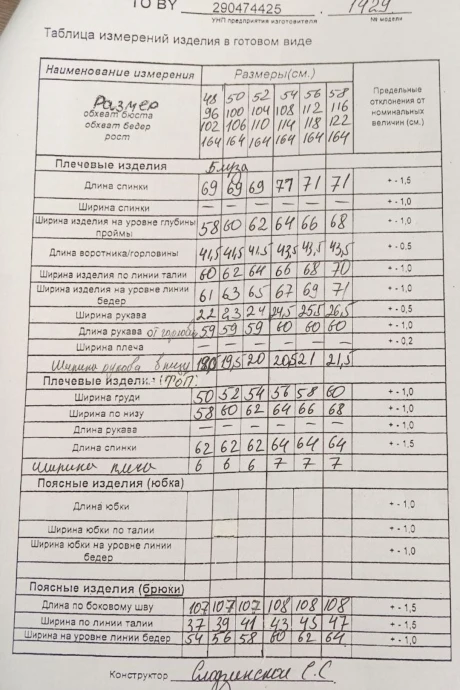 ТО BY 290474425 . 1929.
УНП предприятия изготовителя № модели
Таблица измерений изделия в готовом виде
Наименование измерения Размеры(см.) Предельные отклонения от номинальных величин (см.)
Размер 48 50 52 54 56 58
обхват бюста 96 100 104 108 112 116
обхват бедер 102 106 110 114 118 122
рост 164 164 164 164 164 164
Плечевые изделия Блуза
Длина спинки 69 69 69 71 71 71 + - 1,5
Ширина спинки — — — — — — + - 1,0
Ширина изделия на уровне глубины проймы 58 60 62 64 66 68 + - 1,0
Длина воротника/горловины 41,5 41,5 41,5 43,5 43,5 43,5 + - 0,5
Ширина изделия по линии талии 60 62 64 66 68 70 + - 1,0
Ширина изделия на уровне линии бедер 61 63 65 67 69 71 + - 1,0
Ширина рукава 22 23 24 24,5 25,5 26,5 + - 0,5
Длина рукава от горлов 59 59 59 60 60 60 + - 1,0
Ширина плеча — — — — — — + - 0,2
Ширина рукава внизу 19,5 20 20,5 21 21,5
Плечевые издел : ТОП.
Ширина груди 50 52 54 56 58 60 + - 1,0
Ширина по низу 58 60 62 64 66 68 + - 1,0
Длина рукава — — — — — — + - 1,0
Длина спинки 62 62 62 64 64 64 + - 1,5
Ширина плеча 6 6 6 7 7 7
Поясные изделия (юбка)
Длина юбки + - 1,0
Ширина юбки по талии + - 1,0
Ширина юбки на уровне линии бедер + - 1,0
Поясные изделия (брюки)
Длина по боковому шву 107 107 107 108 108 108 + - 1,5
Ширина по линии талии 37 39 41 43 45 47 + - 1,5
Ширина на уровне линии бедер 54 56 58 60 62 64 + - 1,0
Конструктор С.С.